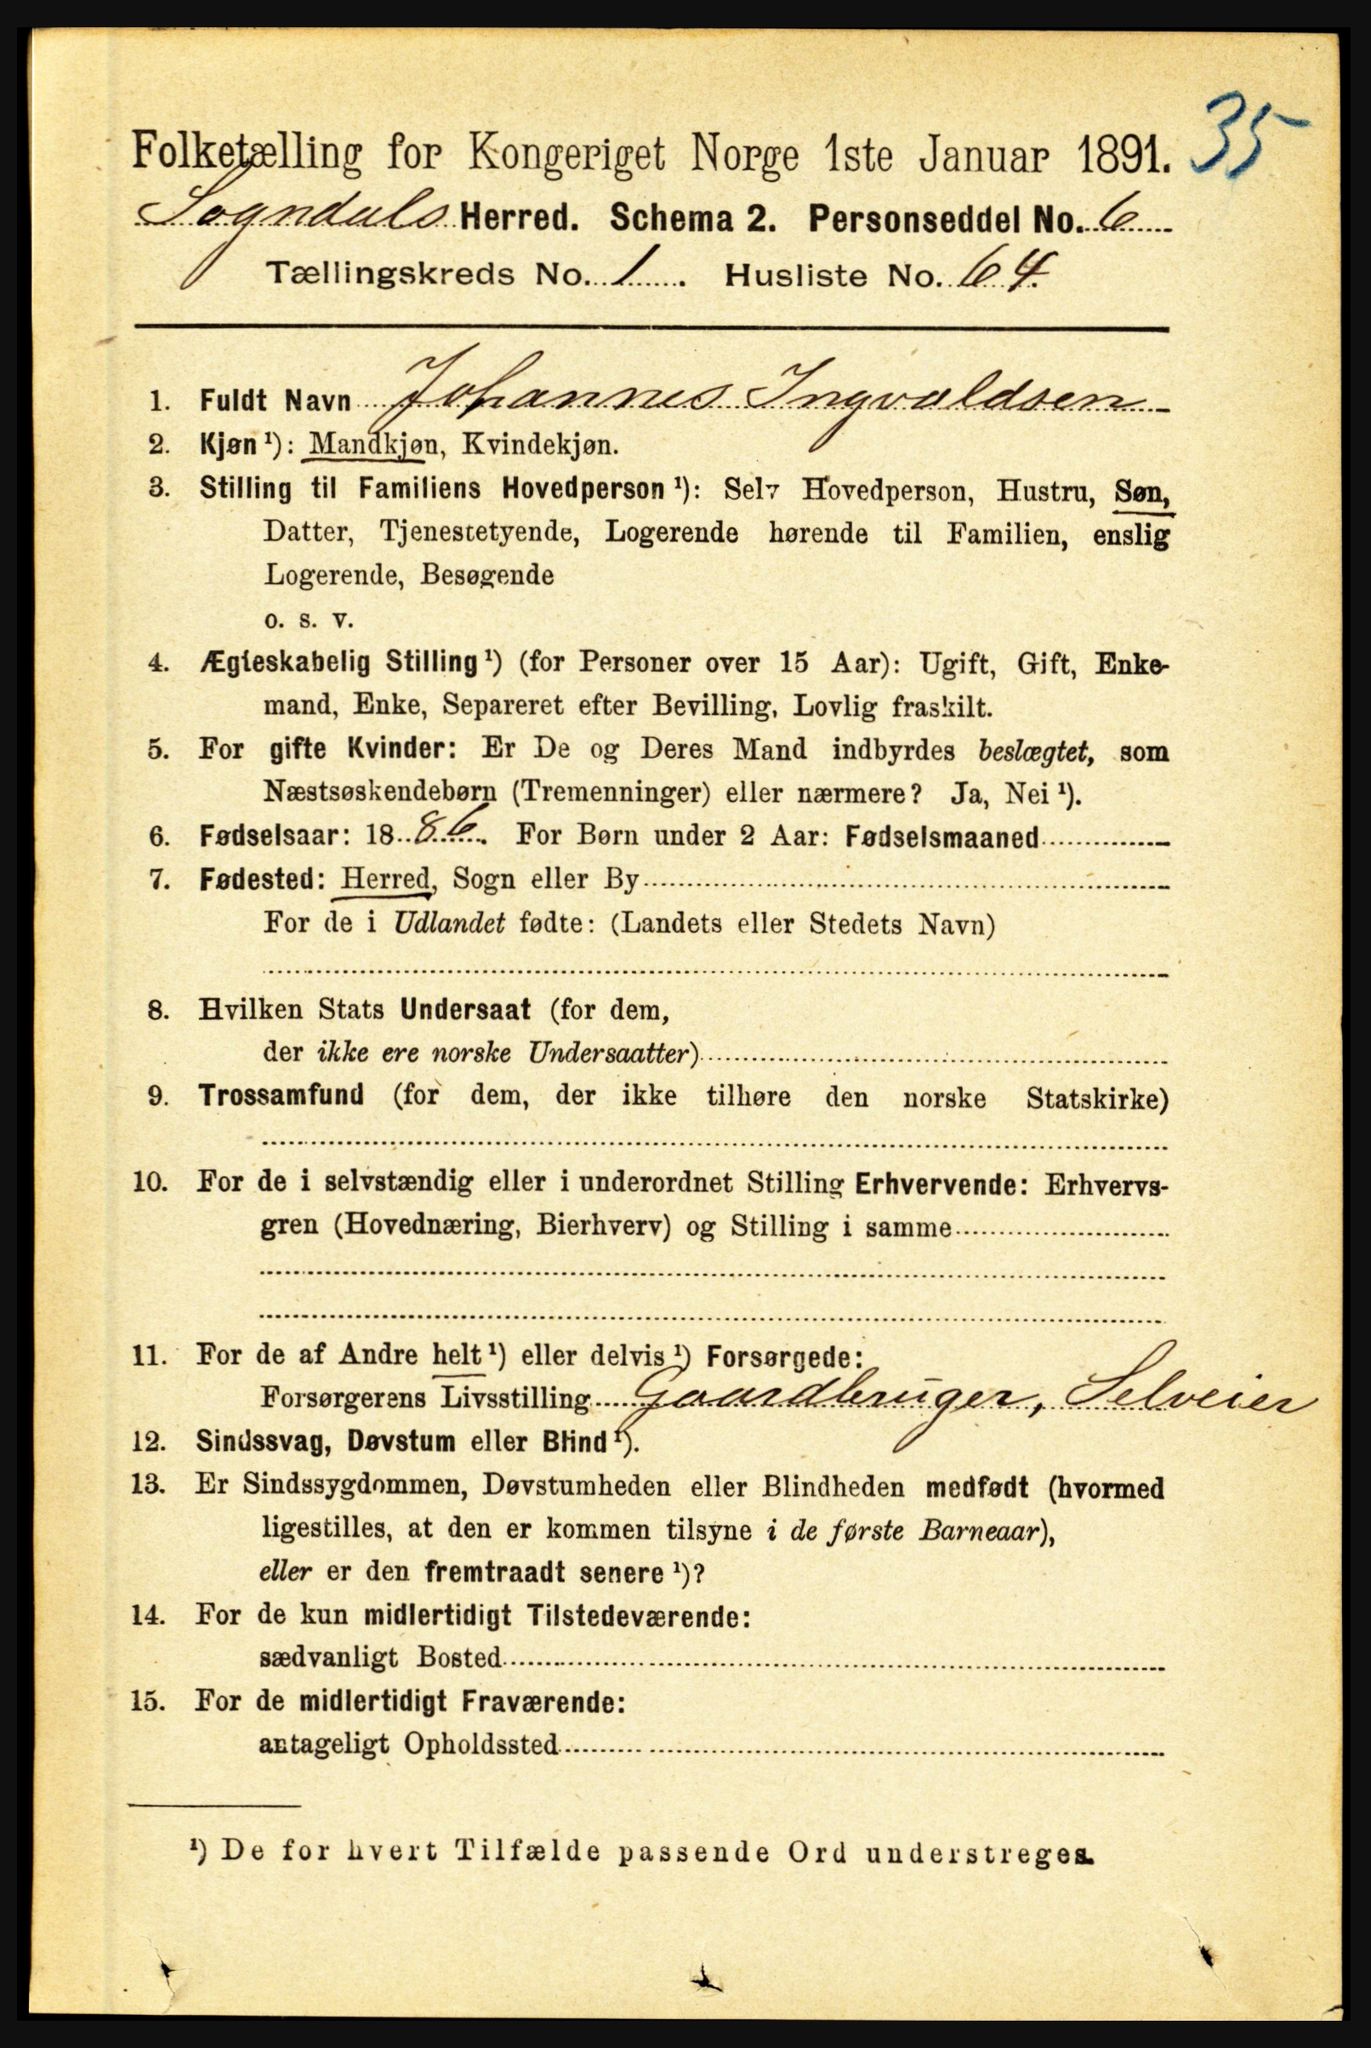 35
Folketælling for Kongeriget Norge 1ste Januar 1891.
Sogndals Herred. Schema 2. Personseddel No. 6
Tællingskreds No. 1. Husliste No. 64.
1. Fuldt Navn Johannes Ingvaldsen
2. Kjøn¹): Mandkjøn, Kvindekjøn.
3. Stilling til Familiens Hovedperson¹): Selv Hovedperson, Hustru, Søn,
Datter, Tjenestetyende, Logerende hørende til Familien, enslig
Logerende, Besøgende
o. s. v.
4. Ægteskabelig Stilling¹) (for Personer over 15 Aar): Ugift, Gift, Enke-
mand, Enke, Separeret efter Bevilling, Lovlig fraskilt.
5. For gifte Kvinder: Er De og Deres Mand indbyrdes beslægtet, som
Næstsøskendebørn (Tremenninger) eller nærmere? Ja, Nei¹).
6. Fødselsaar: 1886. For Børn under 2 Aar: Fødselsmaaned
7. Fødested: Herred, Sogn eller By
For de i Udlandet fødte: (Landets eller Stedets Navn)
8. Hvilken Stats Undersaat (for dem,
der ikke ere norske Undersaatter)
9. Trossamfund (for dem, der ikke tilhøre den norske Statskirke)
10. For de i selvstændig eller i underordnet Stilling Erhvervende: Erhvervs-
gren (Hovednæring, Bierhverv) og Stilling i samme
11. For de af Andre helt¹) eller delvis¹) Forsørgede:
Forsørgerens Livsstilling Gaardbruger, Selveier
12. Sindssvag, Døvstum eller Blind¹).
13. Er Sindssygdommen, Døvstumheden eller Blindheden medfødt (hvormed
ligestilles, at den er kommen tilsyne i de første Barneaar),
eller er den fremtraadt senere¹)?
14. For de kun midlertidigt Tilstedeværende:
sædvanligt Bosted
15. For de midlertidigt Fraværende:
antageligt Opholdssted
¹) De for hvert Tilfælde passende Ord understreges.